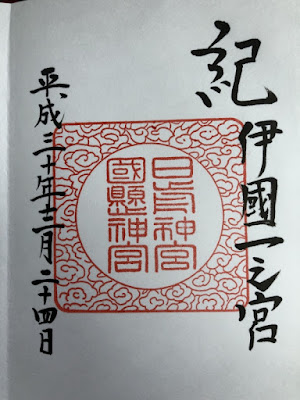 紀伊國一之宮
日前神宮
國懸神宮
平成三十年十二月二十四日